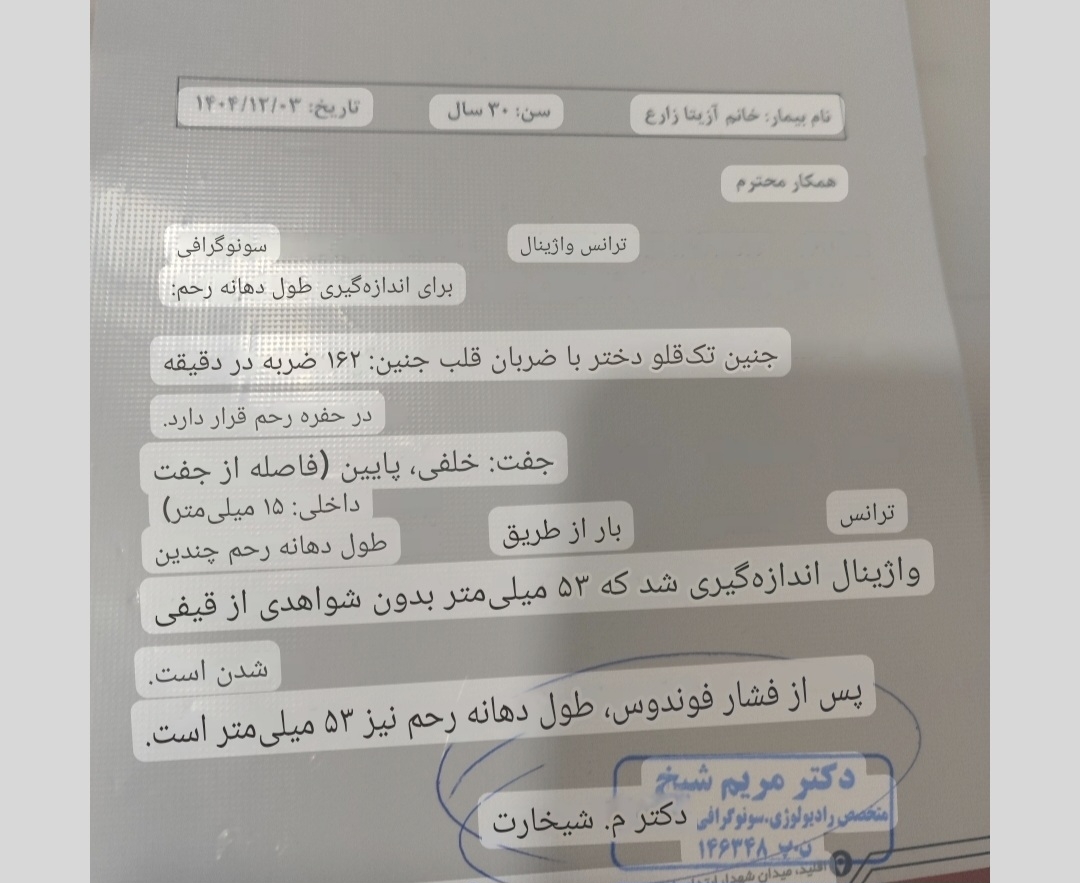 نام بیمار: خانم آزیتا زارع سن: ۳۰ سال تاریخ: ۱۴۰۴/۱۲/۰۳
همکار محترم
سونوگرافی ترانس واژینال
برای اندازه‌گیری طول دهانه رحم:
جنین تک‌قلو دختر با ضربان قلب جنین: ۱۶۲ ضربه در دقیقه
در حفره رحم قرار دارد.
جفت: خلفی، پایین (فاصله از جفت
داخلی: ۱۵ میلی‌متر)
طول دهانه رحم چندین بار از طریق ترانس
واژینال اندازه‌گیری شد که ۵۳ میلی‌متر بدون شواهدی از قیفی
شدن است.
پس از فشار فوندوس، طول دهانه رحم نیز ۵۳ میلی‌متر است.
دکتر مریم شیخ
متخصص رادیولوژی.سونوگرافی
دکتر م. شیخارت
ن-پ ۱۴۶۳۴۸
اقلید، میدان شهدا،